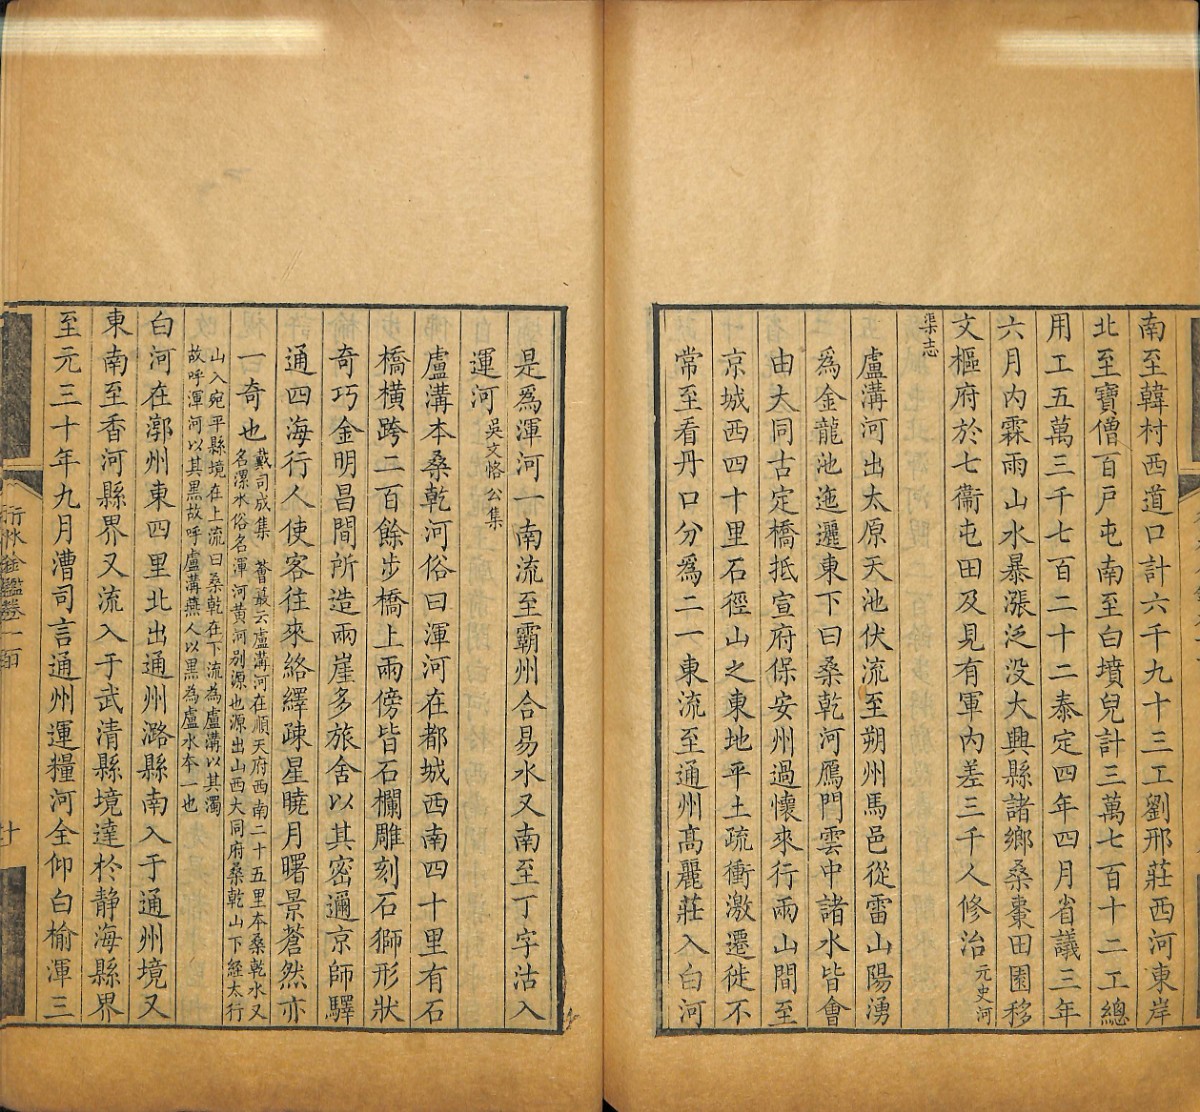 南至韓村西道口計六千九十三工劉邢莊西河東岸
北至寶僧百戶屯南至白墳兒計三萬七百十二工總
用工五萬三千七百二十二泰定四年四月省議三年
六月內霖雨山水暴漲泛没大興縣諸鄉桑棗田園移
文樞府於七衞屯田及見有軍內差三千人修治元史河
渠志
盧溝河出太原天池伏流至朔州馬邑從雷山陽湧
爲金龍池迤邐東下曰桑乾河鴈門雲中諸水皆會
由大同古定橋抵宣府保安州過懷來行兩山間至
京城西四十里石徑山之東地平土疏衝激遷徙不
常至看丹口分爲二一東流至通州高麗莊入白河
是爲渾河一南流至霸州合易水又南至丁字沽入
運河吳文恪公集
盧溝本桑乾河俗曰渾河在都城西南四十里有石
橋橫跨二百餘步橋上兩傍皆石欄雕刻石獅形狀
奇巧金明昌間所造兩崖多旅舍以其密邇京師驛
通四海行人使客往來絡繹疎星曉月曙景蒼然亦
一奇也戴司成集 薈蕞云盧溝河在順天府西南二十五里本桑乾水又
名漯水俗名渾河黃河别源也源出山西大同府桑乾山下經太行
山入宛平縣境在上流曰桑乾在下流為盧溝以其濁
故呼渾河以其黑故呼盧溝燕人以黑為盧水本一也
白河在漷州東四里北出通州潞縣南入于通州境又
東南至香河縣界又流入于武清縣境達於静海縣界
至元三十年九月漕司言通州運糧河全仰白榆渾三
行水金鑑卷一百